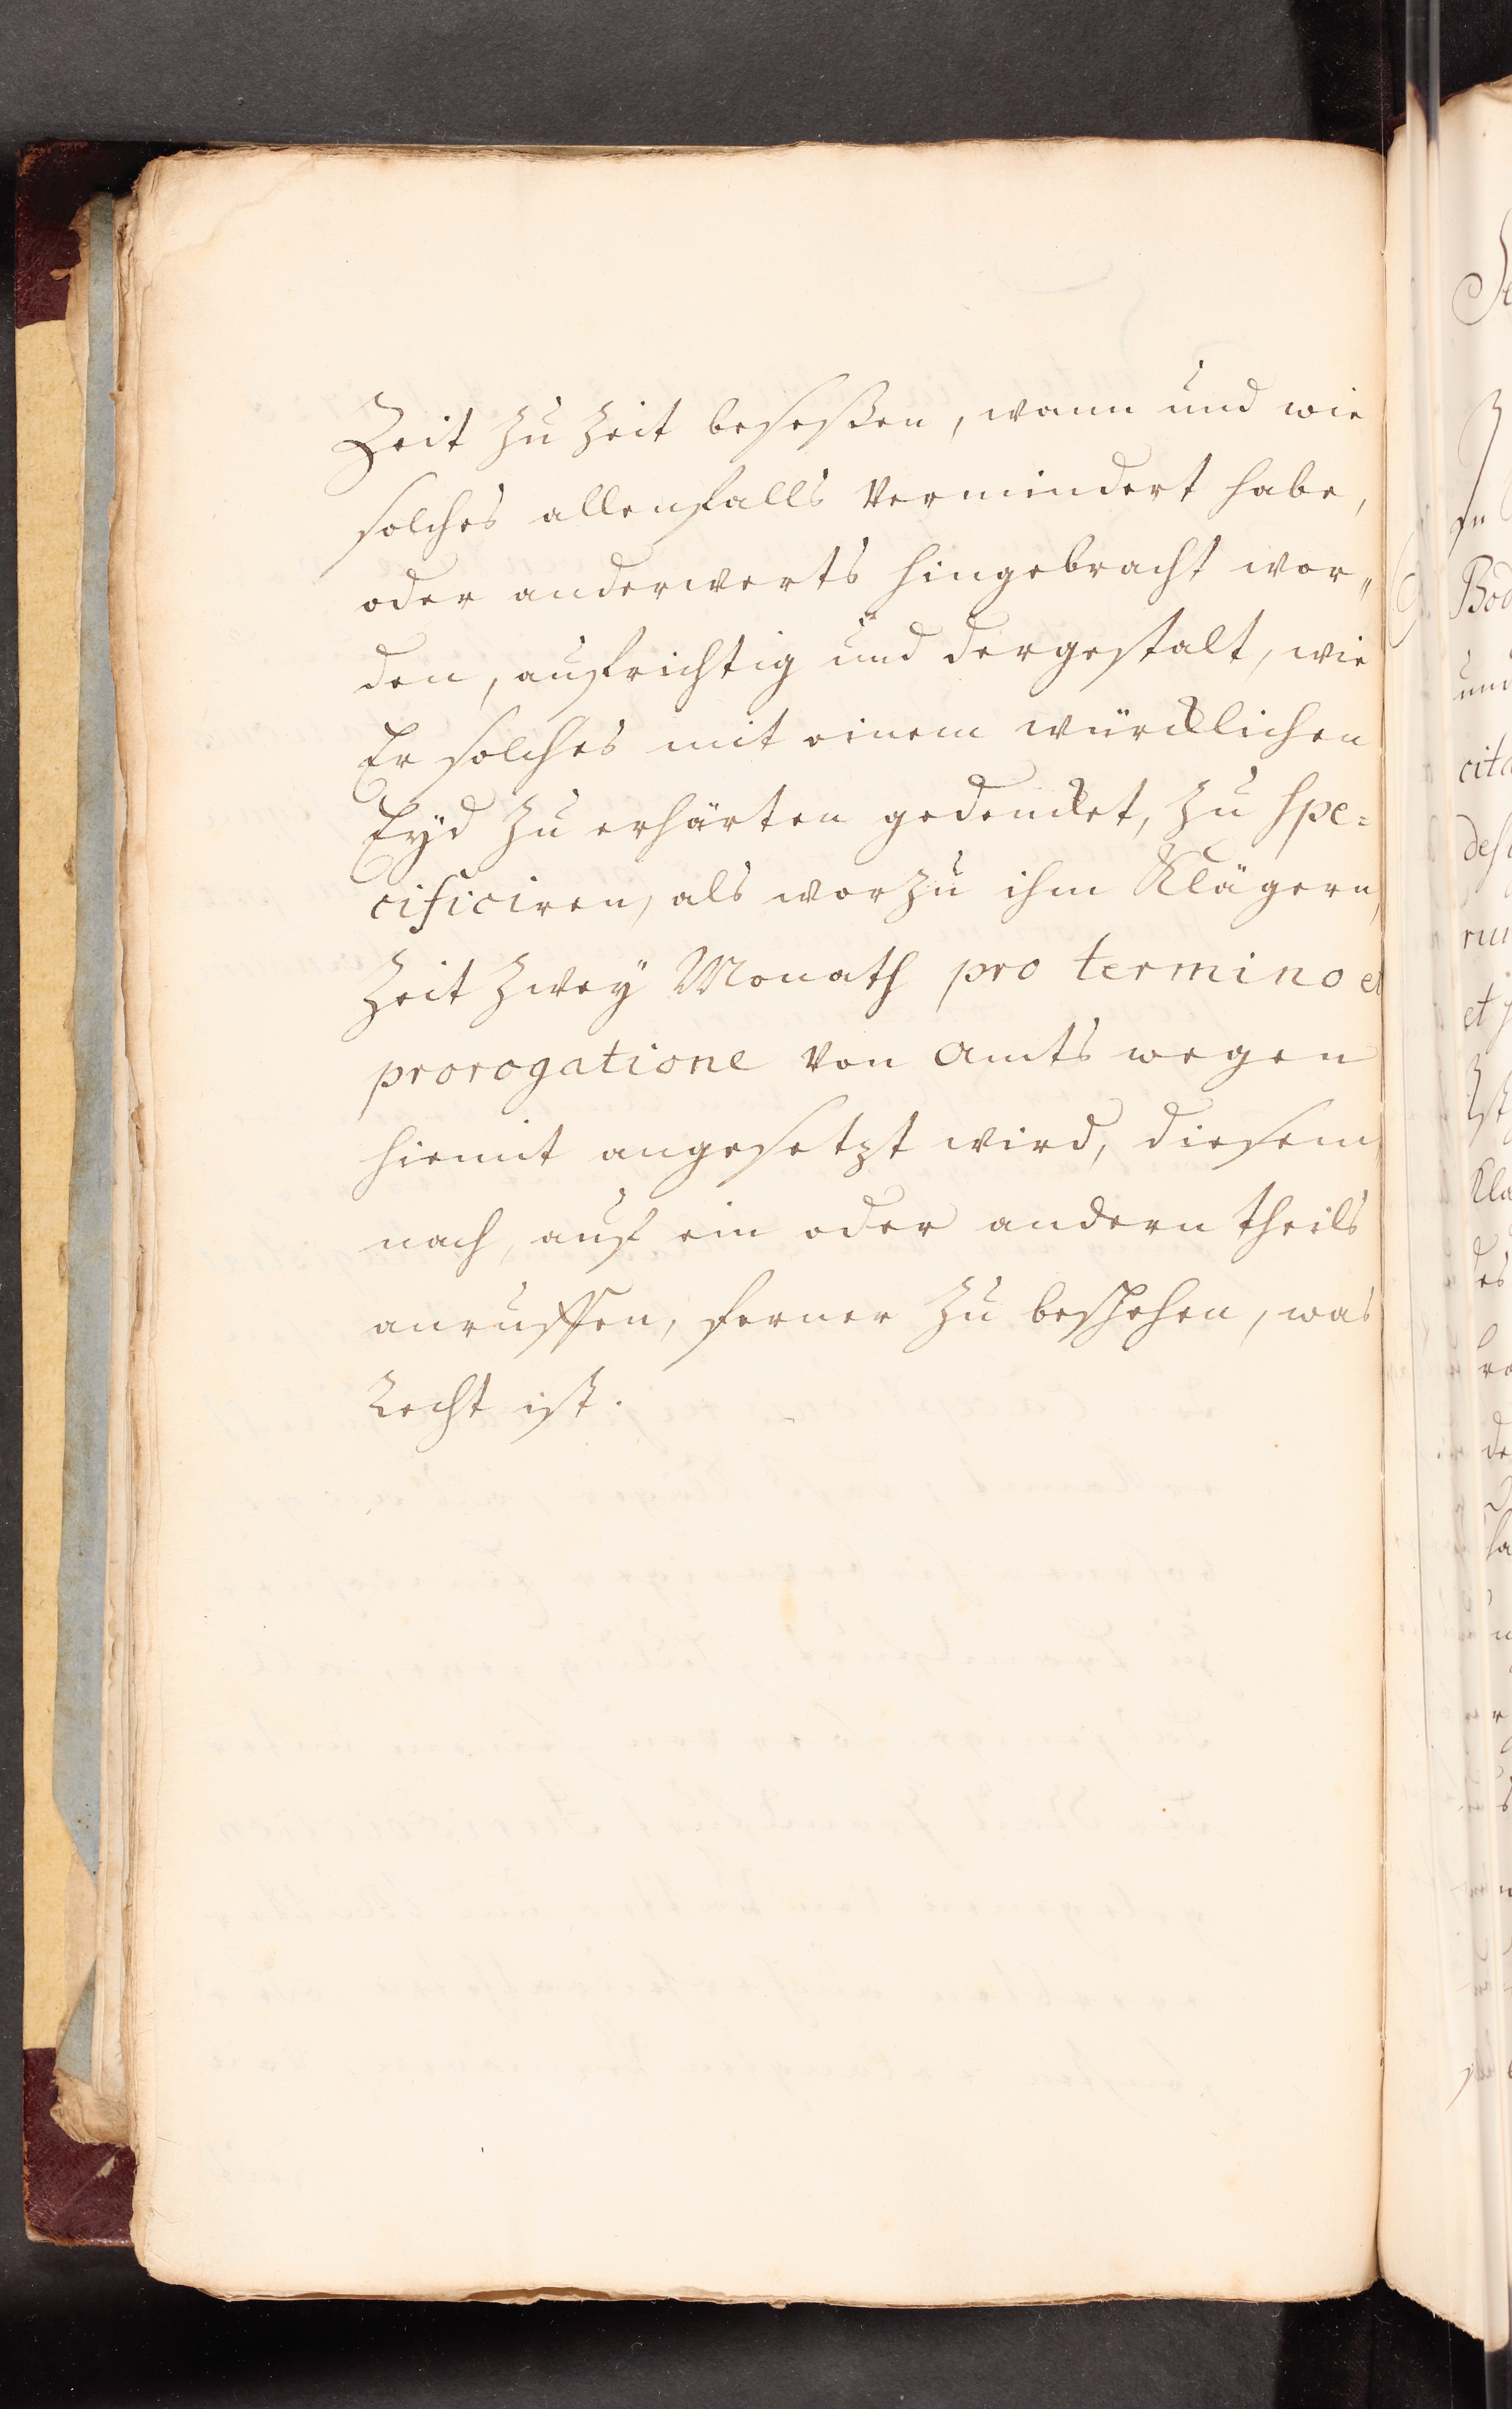 Zeit zu Zeit beseßen, wann und wie
solches allenfalls vermindert habe,
oder anderwerts hingebracht wor„
den, aufrichtig und dergestalt, wie
Er solches mit einem würcklichen
Eyd zu erhärten gedencket, zu spe=
cificiren, als worzu ihm Klägern,
Zeit zwey Monath pro termino et
prorogatione von Amts wegen
hiemit angesetzt wird, diesem
nach, auf ein oder andern theils
anruffen, ferner zu beschehen, was
Recht ist.